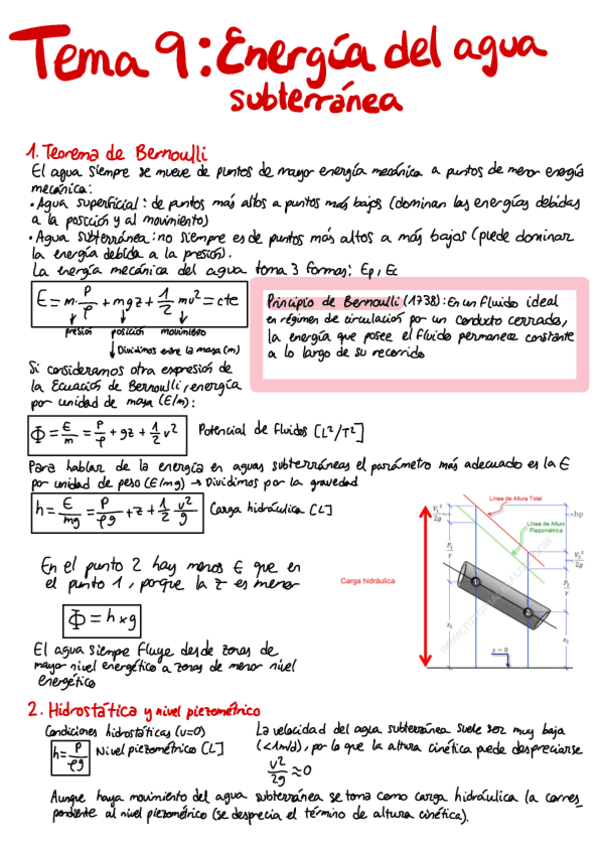 Tema 9: Energía del agua
subterránea
1. Teorema de Bernoulli
El agua siempre se mueve de puntos de mayor energía mecánica a puntos de menor energía
mecánica:
• Agua superficial: de puntos más altos a puntos más bajos (dominan las energías debidas
a la posición y al movimiento)
• Agua subterránea: no siempre es de puntos más altos a más bajos (puede dominar
la energía debida a la presión).
La energía mecánica del agua toma 3 formas: Ep, Ec
E = m·P/ρ + mgz + 1/2 mv² = cte
presión posición movimiento
Dividimos entre la masa (m)
Principio de Bernoulli (1738): En un fluido ideal
en régimen de circulación por un conducto cerrado,
la energía que posee el fluido permanece constante
a lo largo de su recorrido
Si consideramos otra expresión de
la Ecuación de Bernoulli, energía
por unidad de masa (E/m):
Φ = E/m = P/ρ + gz + 1/2 v² Potencial de fluidos [L²/T²]
Para hablar de la energía en aguas subterráneas el parámetro más adecuado es la E
por unidad de peso (E/mg) → Dividimos por la gravedad
h = E/mg = P/ρg + z + 1/2 v²/g Carga hidráulica [L]
En el punto 2 hay menos E que en
el punto 1, porque la z es menor
Φ = h × g
El agua siempre fluye desde zonas de
mayor nivel energético a zonas de menor nivel
energético
Línea de Altura Total
Línea de Altura
Piezométrica
hp
V₁²/2g
V₂²/2g
P₁/γ
P₂/γ
z₁
z₂
z = 0
Carga hidráulica
2. Hidrostática y nivel piezométrico
Condiciones hidrostáticas (v=0)
h = P/ρg Nivel piezométrico [L]
La velocidad del agua subterránea suele ser muy baja
(<1m/d), por lo que la altura cinética puede despreciarse
v²/2g ≈ 0
Aunque haya movimiento del agua subterránea se toma como carga hidráulica la corres
pondiente al nivel piezométrico (se desprecia el término de altura cinética).